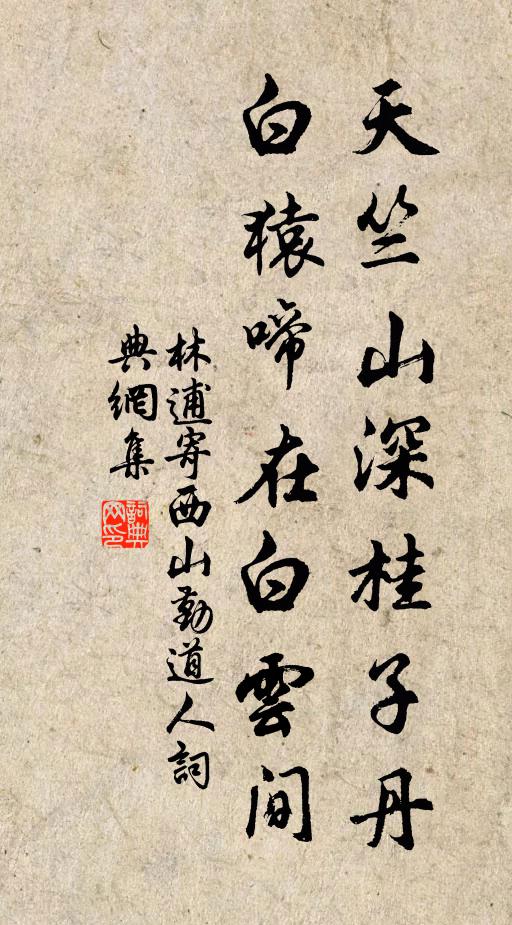 天竺山深桂子丹
白猿啼在白雲間
林逋寄西山勤道人詞
典網集
詞典
网印